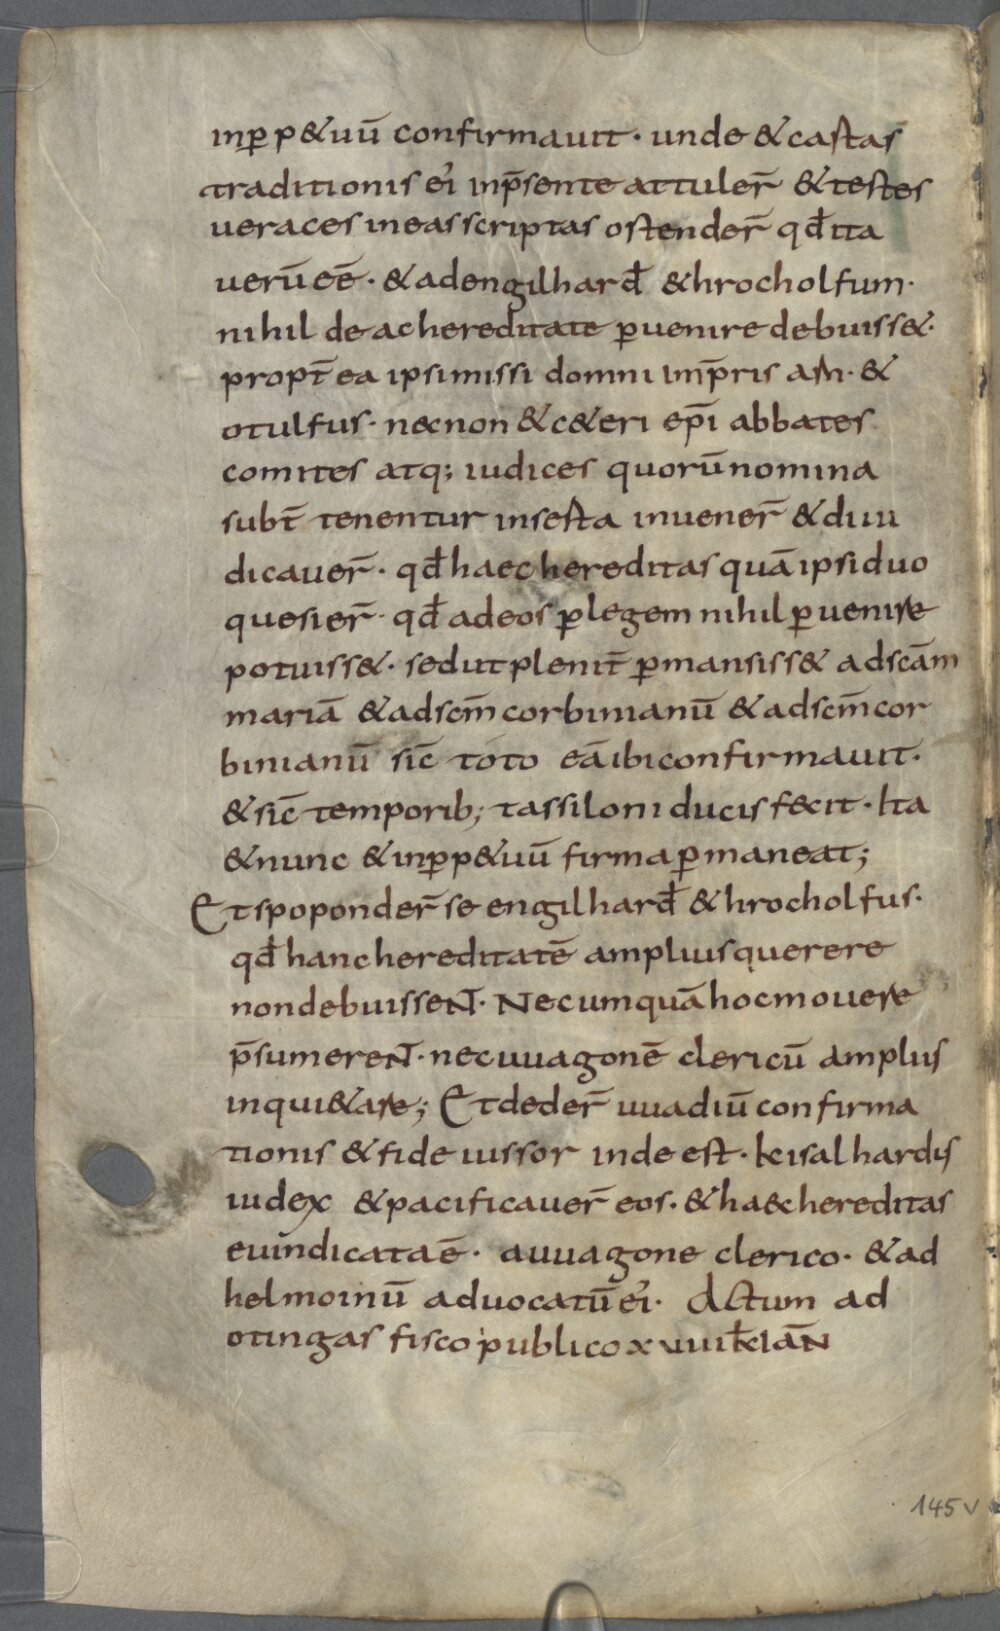 inꝑp&uū confirmauit · unde & castas
traditionis ei᾽ inp̄sente attuler̄ & testes
ueraces ineas scriptas ostender̄ qđ ita
uerū eē · & ad engilharđ & hrocholfum ·
nihil de ac hereditate ꝑuenire debuiss& ·
propt̄ ea ipsi missi domni imp̄ris arn · &
otulfus · necnon & c&eri ep̄i abbates
comites atq; iudices quorū nomina
subt̄ tenentur insesta inuener̄ & diiu
dicauer̄ · qđ haec hereditas quā ipsi duo
quesier̄ · qđ adeos ꝑlegem nihil ꝑuenire
potuiss& · sed ut plenit̄ ꝑmansiss& ad scām
mariā & ad scm̄ corbinianū & ad scm̄ cor
binianū sic̄ toto eā ibi confirmauit ·
& sic̄ temporib; tassiloni ducis fecit · Ita
& nunc & inꝑp&uū firma ꝑmaneat;
Et sposponder̄ se engilharđ & hrocholfus ·
qđ hanc hereditatē amplius querere
non debuisseNT · Nec umquā hoc mouere
p̄sumereNT · nec uuagonē clericū amplus
inqui&are; Et deder̄ uuadiū confirma
tionis & fideiussor inde est · kisalhardis
iudex & pacificauer̄ eos · & haec hereditas
euindicata ē · a uuagone clerico · & ad
helmoinū aduocatū ei᾽ · Actum ad
otingas fisco publico xuiii kl iāN
145 v